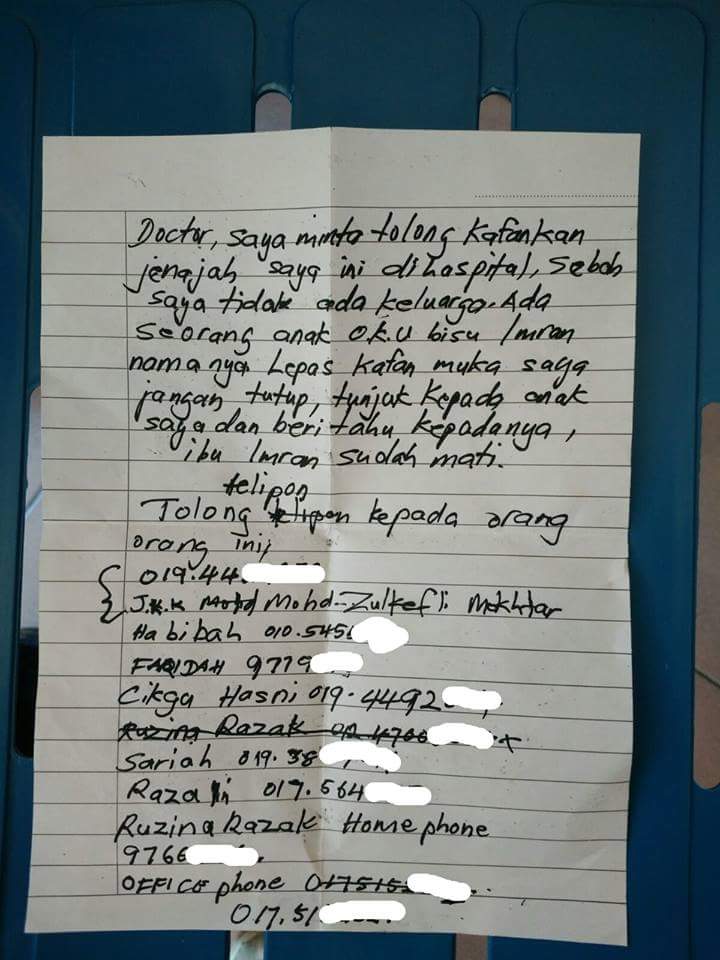 Doctor, saya minta tolong Kafankan
jenajah saya ini dihospital, Sebab
saya tidak ada keluarga. Ada
Seorang anak O.K.U bisu Imran
namanya Lepas Kafan muka saya
jangan tutup, tunjuk Kepada anak
saya dan beri tahu kepadanya,
ibu Imran sudah mati.
telipon
Tolong telipon kepada orang
orang ini,
019.44
J.K.K Mohd Mohd-Zulkefli Mokhtar
Habibah 010.545
FARIDAH 9779
Cikga Hasni 019.4492
Ruzina Razak 4766 x
Sariah 019.38
Razali 017.564
Ruzina Razak Home phone
9766
OFFICE phone 0175151
017.51